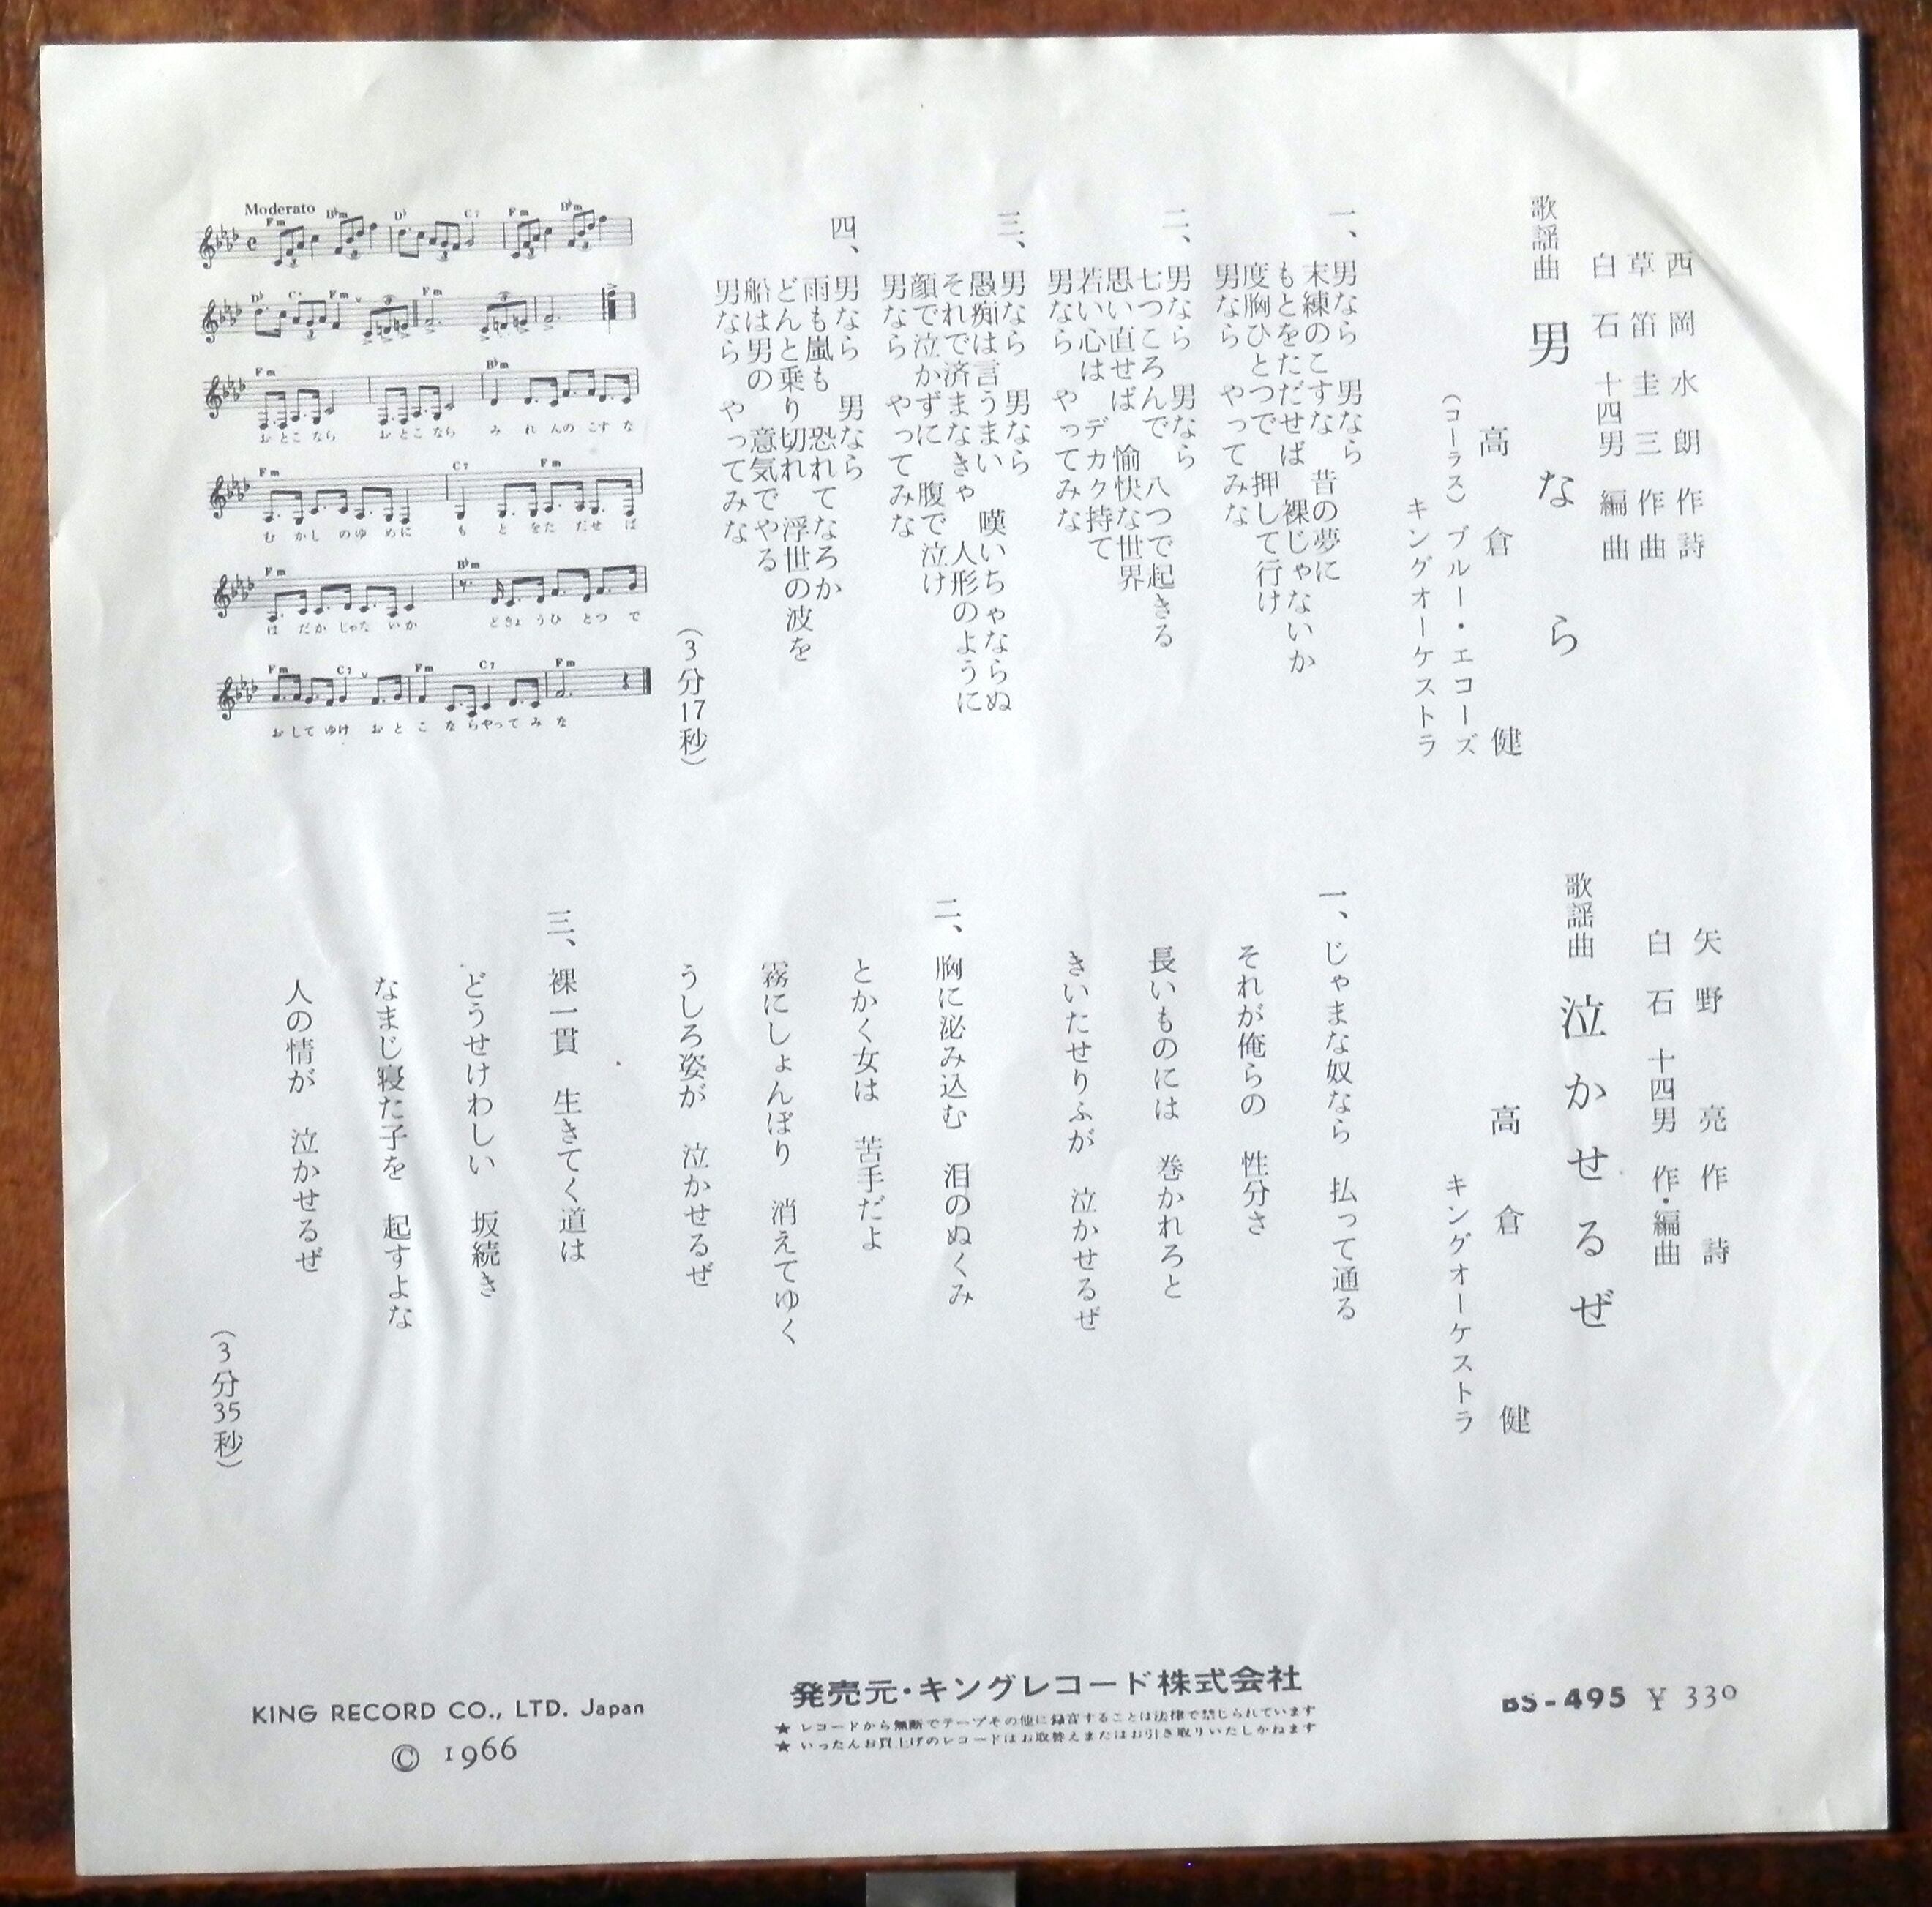 西岡水朗 作詩
草笛圭三 作曲
白石十四男 編曲
歌謡曲 男なら
高倉健
(コーラス) ブルー・エコーズ
キングオーケストラ
一、男なら 男なら
末練のこすな 昔の夢に
もとをただせば 裸じゃないか
度胸ひとつで 押して行け
男なら やってみな
二、男なら 男なら
七つころんで 八つで起きる
思い直せば 愉快な世界
若い心は デカク持て
男なら やってみな
三、男なら 男なら
愚痴は言うまい 嘆いちゃならぬ
それで済まなきゃ 人形のように
顔で泣かずに 腹で泣け
男なら やってみな
四、男なら 男なら
雨も嵐も 恐れてなろか
どんと乗り切れ 浮世の波を
船は男の 意気でやる
男なら やってみな
(3分17秒)
Moderato
Fm B♭m D♭ C7 Fm B♭m
D♭ C7 Fm Fm
Fm B♭m
おとこなら おとこなら みれんのこすな
Fm C7 Fm
むかしのゆめに もとをただせば
Fm B♭m
はだかじゃないか どきょうひとつで
Fm C7 Fm C7 Fm
おしてゆけ おとこならやってみな
矢野亮 作詩
白石十四男 作・編曲
歌謡曲 泣かせるぜ
高倉健
キングオーケストラ
一、じゃまな奴なら 払って通る
それが俺らの 性分さ
長いものには 巻かれろと
きいたせりふが 泣かせるぜ
二、胸に泌み込む 泪のぬくみ
とかく女は 苦手だよ
霧にしょんぼり 消えてゆく
うしろ姿が 泣かせるぜ
三、裸一貫 生きてく道は
どうせけわしい 坂続き
なまじ寝た子を 起すよな
人の情が 泣かせるぜ
(3分35秒)
KING RECORD CO., LTD. Japan
© 1966
発売元・キングレコード株式会社
★ レコードから無断でテープその他に録音することは法律で禁じられています
★ いったんお買上げのレコードはお取替えまたはお引き取りいたしかねます
BS-495 ¥ 330